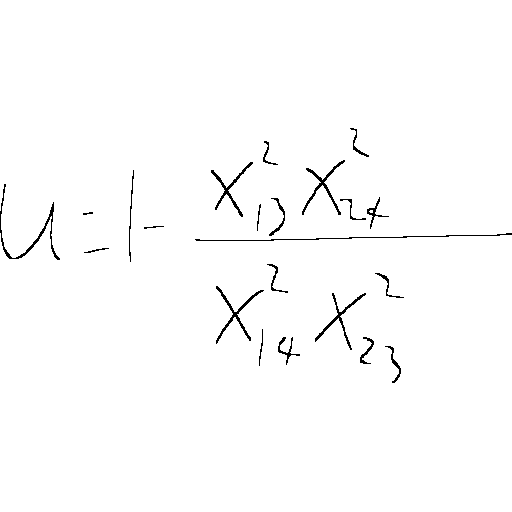 u = 1 - \frac{x_{13}^2 x_{24}^2}{x_{14}^2 x_{23}^2}